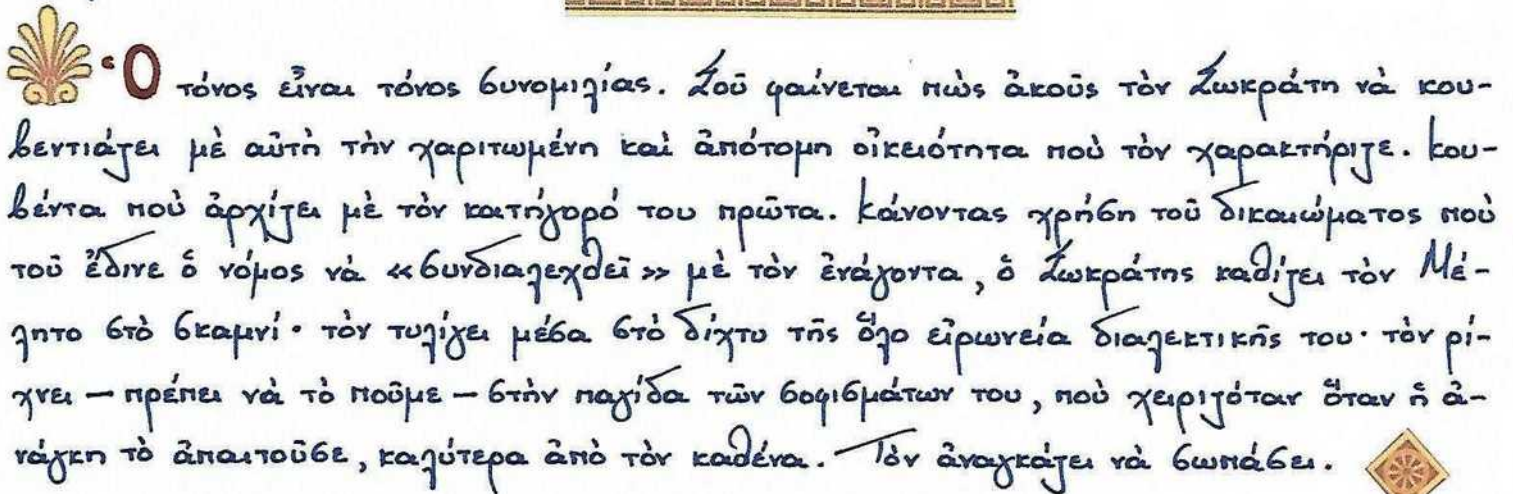 Ὁ τόνος εἶναι τόνος συνομιλίας. Σοῦ φαίνεται πὼς ἀκοῦς τὸν Σωκράτη νὰ κου-
βεντιάζει μὲ αὐτὴ τὴν χαριτωμένη καὶ ἀπότομη οἰκειότητα ποὺ τὸν χαρακτήριζε. Κου-
βέντα ποὺ ἀρχίζει μὲ τὸν κατήγορό του πρῶτα. Κάνοντας χρήση τοῦ δικαιώματος ποὺ
τοῦ ἔδινε ὁ νόμος νὰ «συνδιαλεχθεῖ» μὲ τὸν ἐνάγοντα, ὁ Σωκράτης καθίζει τὸν Μέ-
λητο στὸ σκαμνί· τὸν τυλίγει μέσα στὸ δίχτυ τῆς ὅλο εἰρωνεία διαλεκτικῆς του· τὸν ρί-
χνει — πρέπει νὰ τὸ ποῦμε — στὴν παγίδα τῶν σοφισμάτων του, ποὺ χειριζόταν ὅταν ἡ ἀ-
νάγκη τὸ ἀπαιτοῦσε, καλύτερα ἀπὸ τὸν καθένα. Τὸν ἀναγκάζει νὰ σωπάσει.